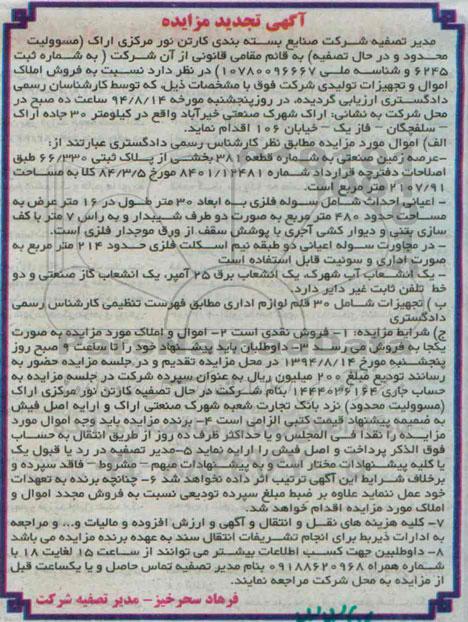 آگهی تجدید مزایده
مدیر تصفیه شرکت صنایع بسته بندی کارتن نور مرکزی اراک (مسوولیت
محدود و در حال تصفیه) به قائم مقامی قانونی از آن شرکت ( به شماره ثبت
۶۲۴۵ و شناسه ملی ۱۰۷۸۰۰۹۶۶۶۷) در نظر دارد نسبت به فروش املاک
اموال و تجهیزات تولیدی شرکت فوق با مشخصات ذیل، که توسط کارشناسان رسمی
دادگستری ارزیابی گردیده، در روزپنجشنبه مورخه ۹۴/۸/۱۴ ساعت ده صبح در
محل شرکت به نشانی: اراک شهرک صنعتی خیرآباد واقع در کیلومتر ۳۰ جاده اراک
– سلفچگان – فاز یک – خیابان ۱۰۶ اقدام نماید.
الف) اموال مورد مزایده مطابق نظر کارشناس رسمی دادگستری عبارتند از:
-عرصه زمین صنعتی به شماره قطعه ۳۸۱ بخشی از پلاک ثبتی ۶۶/۳۳۰ طبق
اصلاحات دفترچه قرارداد شماره ۸۴۰۱/۱۲۴۸۱ مورخ ۸۴/۳/۵ کلا به مساحت
۲۱۰۷/۹۱ متر مربع است.
- اعیانی احداث شامل سوله فلزی به ابعاد ۳۰ متر طول در ۱۶ متر عرض به
مساحت حدود ۴۸۰ متر مربع به صورت دو طرف شیبدار و به راس ۷ متر با کف
سازی بتنی و دیوار کشی آجری با پوشش سقف از ورق موجدار فلزی است.
- در مجاورت سوله اعیانی دو طبقه نیم اسکلت فلزی حدود ۲۱۴ متر مربع به
صورت اداری و سوئیت قابل استفاده است
- یک انشعاب آب شهرک، یک انشعاب برق ۲۵ آمپر، یک انشعاب گاز صنعتی و دو
خط تلفن ثابت غیر دایر دارد.
ب ) تجهیزات شامل ۳۰ قلم لوازم اداری مطابق فهرست تنظیمی کارشناس رسمی
دادگستری
ج) شرایط مزایده: ۱- فروش نقدی است ۲- اموال و املاک مورد مزایده به صورت
یکجا به فروش می رسد ۳- داوطلبان باید پیشنهاد خود را تا ساعت ۹ صبح روز
پنجشنبه مورخ ۱۳۹۴/۸/۱۴ در محل مزایده تقدیم و در جلسه مزایده حضور به
رسانند تودیع مبلغ ۲۰۰ میلیون ریال به عنوان سپرده شرکت در جلسه مزایده به
حساب جاری ۱۴۴۴۰۳۶۱۶۴ بنام شرکت در حال تصفیه کارتن نور مرکزی اراک
(مسوولیت محدود) نزد بانک تجارت شعبه شهرک صنعتی اراک و ارایه اصل فیش
به ضمیمه پیشنهاد قیمت کتبی الزامی است ۴- برنده مزایده باید وجه اموال مورد
مزایده را نقدا فی المجلس و یا حداکثر ظرف ده روز از طریق انتقال به حساب
فوق الذکر پرداخت و اصل فیش را ارایه نماید ۵-مدیر تصفیه در رد یا قبول یک
یا کلیه پیشنهادات مختار است و به پیشنهادات مبهم – مشروط – فاقد سپرده و
برخلاف شرایط این آگهی ترتیب اثر داده نخواهد شد ۶- چنانچه برنده به تعهدات
خود عمل ننماید علاوه بر ضبط مبلغ سپرده تودیعی نسبت به فروش مجدد اموال و
املاک مورد مزایده اقدام خواهد شد.
۷- کلیه هزینه های نقل و انتقال و آگهی و ارزش افزوده و مالیات و... و مراجعه
به ادارات ذیربط برای انجام تشریفات انتقال سند به عهده برنده مزایده می باشد
۸- داوطلبین جهت کسب اطلاعات بیشتر می توانند از ساعت ۱۵ لغایت ۱۸ با
شماره همراه ۰۹۱۸۸۶۲۰۹۶۸ بنام مدیر تصفیه تماس حاصل و یا یکساعت قبل
از مزایده به محل شرکت مراجعه نمایند.
فرهاد سحرخیز – مدیر تصفیه شرکت